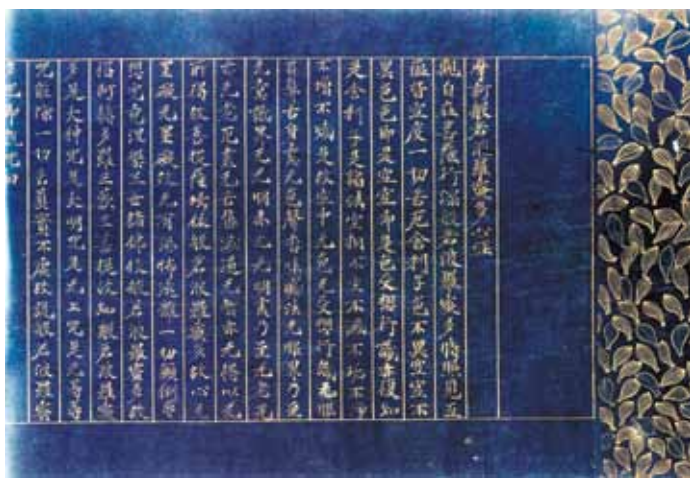 摩訶般若波羅蜜多心經
觀自在菩薩行深般若波羅蜜多時照見五
蘊皆空度一切苦厄舍利子色不異空空不
異色色即是空空即是色受想行識亦復如
是舍利子是諸法空相不生不滅不垢不淨
不增不減是故空中无色无受想行識无眼
耳鼻舌身意无色聲香味觸法无眼界乃至
无意識界无无明亦无无明盡乃至无老死
亦无老死盡无苦集滅道无智亦无得以无
所得故菩提薩埵依般若波羅蜜多故心无
罣礙无罣礙故无有恐怖遠離一切顛倒夢
想究竟涅槃三世諸佛依般若波羅蜜多故
得阿耨多羅三藐三菩提故知般若波羅蜜
多是大神咒是大明咒是无上咒是无等等
咒能除一切苦真實不虛故說般若波羅蜜
即說咒曰